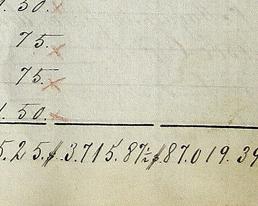 1. 50. x
75. x
75. x
1. 50. x
5.25. $ 3.715.87½ $ 87.019.39